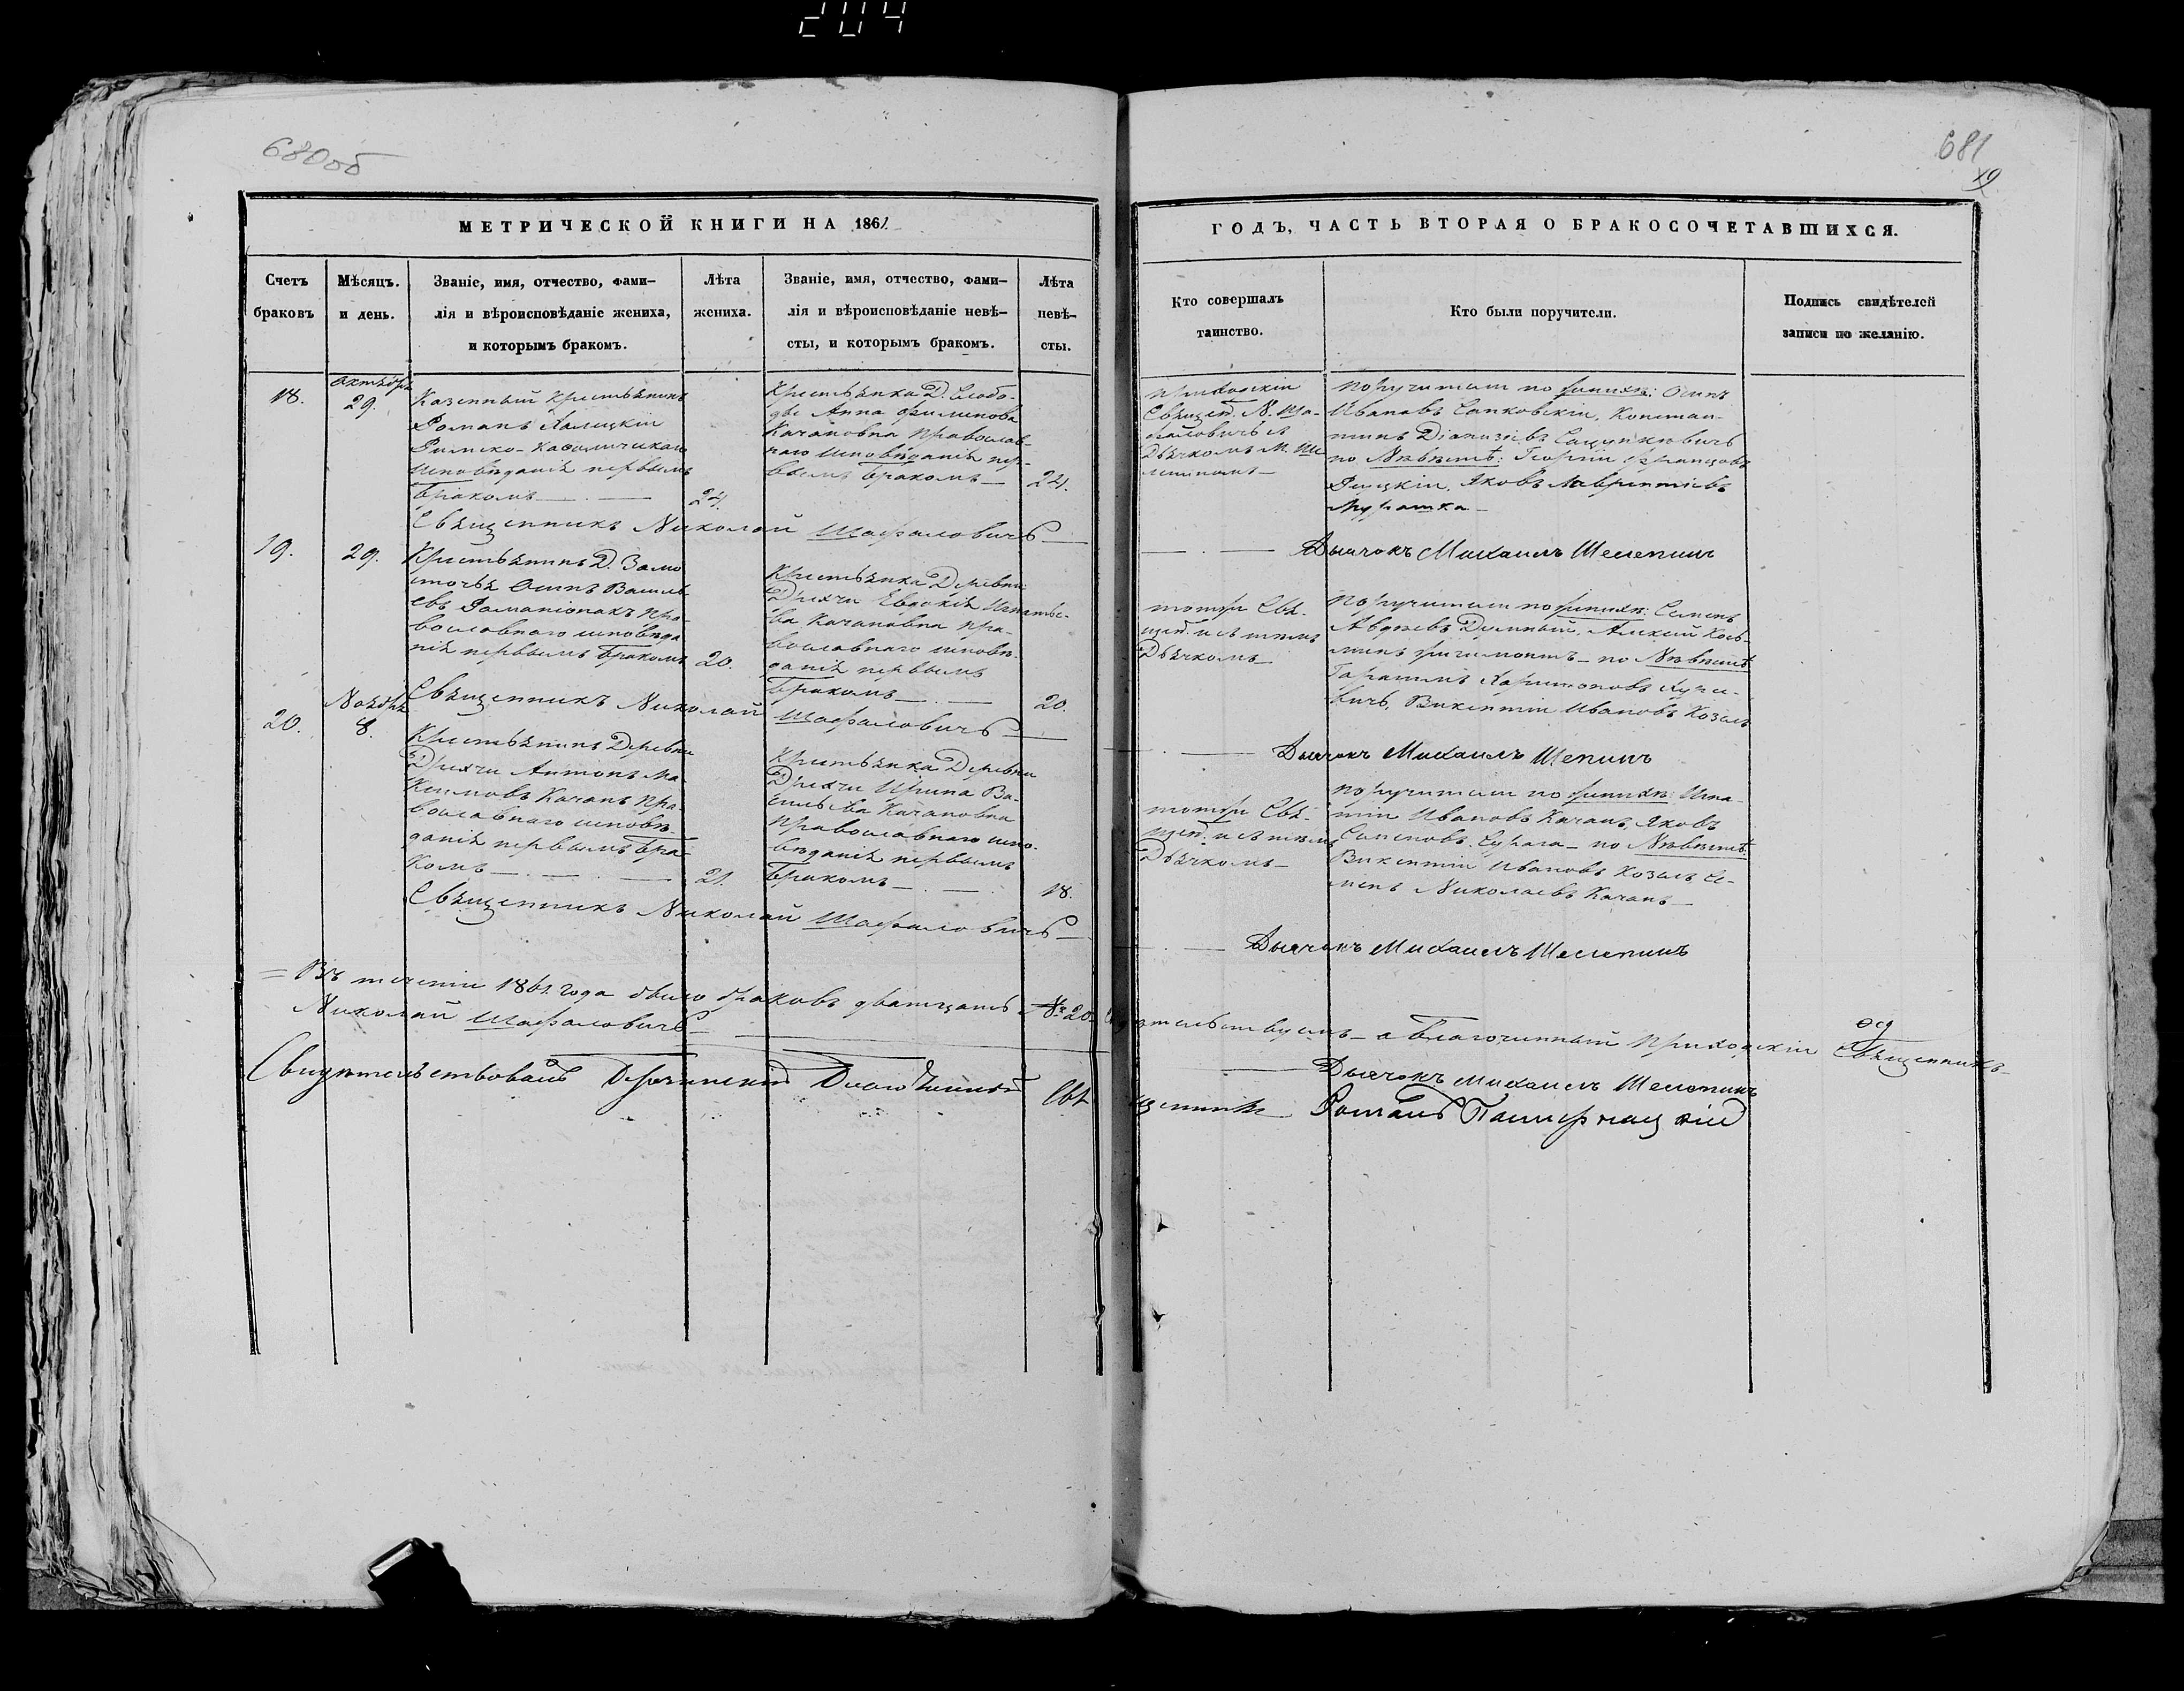 204
680об
681
19
МЕТРИЧЕСКОЙ КНИГИ НА 1861
ГОДЪ, ЧАСТЬ ВТОРАЯ О БРАКОСОЧЕТАВШИХСЯ.
Счетъ
браковъ
Мѣсяцъ.
и день.
Званіе, имя, отчество, фами-
лія и вѣроисповѣданіе жениха,
и которымъ бракомъ.
Лѣта
жениха.
Званіе, имя, отчество, фами-
лія и вѣроисповѣданіе невѣ-
сты, и которымъ бракомъ.
Лѣта
невѣ-
сты.
Кто совершалъ
таинство.
Кто были поручители.
Подпись свидѣтелей
записи по желанію.
18.
Октября
29.
Казенный Крестьянинъ
Романъ
Римско-Католическаго
исповѣданія первымъ
бракомъ
24.
Крестьянка Д. Слобо-
Анна
Качановна православ-
наго исповѣданія пер-
вымъ бракомъ
24.
Приходскій
Свящ. Н. Ша-
фаловичъ
Дьячкомъ М. Ше
Поручители по женихѣ: Осипъ
Ивановъ Сапковскій, Констан-
тинъ
по Невѣстѣ: Георгій Францовъ
Яковъ Лаврентіевъ
Мурашка
Священникъ Николай Шафаловичъ
Дьячокъ Михаилъ Шелепинъ
19.
29.
Крестьянинъ Д. Замо
сточья Осипъ Василь
евъ Романіонакъ пра-
вославнаго исповѣда
нія первымъ бракомъ
20.
Крестьянка Деревни
Дрихчи Евдокія Игнатье-
ва Качановна пра-
вославнаго исповѣ-
данія первымъ
бракомъ
20.
тотже Свя-
щен. и съ тѣмъ
Дьячкомъ
Поручители по женихѣ: Семенъ
Авдѣевъ Алексѣй Козь-
минъ по Невѣстѣ
Харитоновъ
Викентій Ивановъ Козелъ
Священникъ Николай Шафаловичъ
Дьячокъ Михаилъ Шепинъ
20.
Ноября
8.
Крестьянинъ Деревни
Дрихчи Антонъ Ма-
ксимовъ Качанъ пра
вославнаго исповѣ-
данія первымъ бра-
комъ
21.
Крестьянка Деревни
Дрихчи Ирина Ва-
сильева Качановна
православнаго испо-
вѣданія первымъ
бракомъ
18.
тотже Свя-
щен. и съ тѣмъ
Дьячкомъ
Поручители по женихѣ: Игна-
тій Ивановъ Качанъ, Яковъ
Семеновъ по Невѣстѣ:
Викентій Ивановъ Козелъ Се-
менъ Николаевъ Качанъ
Священникъ Николай Шафаловичъ
Дьячокъ Михаилъ Шелепинъ
= Въ теченіи 1861. года было браковъ дватцать № 20. Свидѣтельствуемъ Благочинный Приходскій Священникъ
Николай Шафаловичъ
Дьячокъ Михаилъ Шелепинъ
Свидѣтельствовалъ Благочинный Свя
щенникъ Романъ Пастернацкій